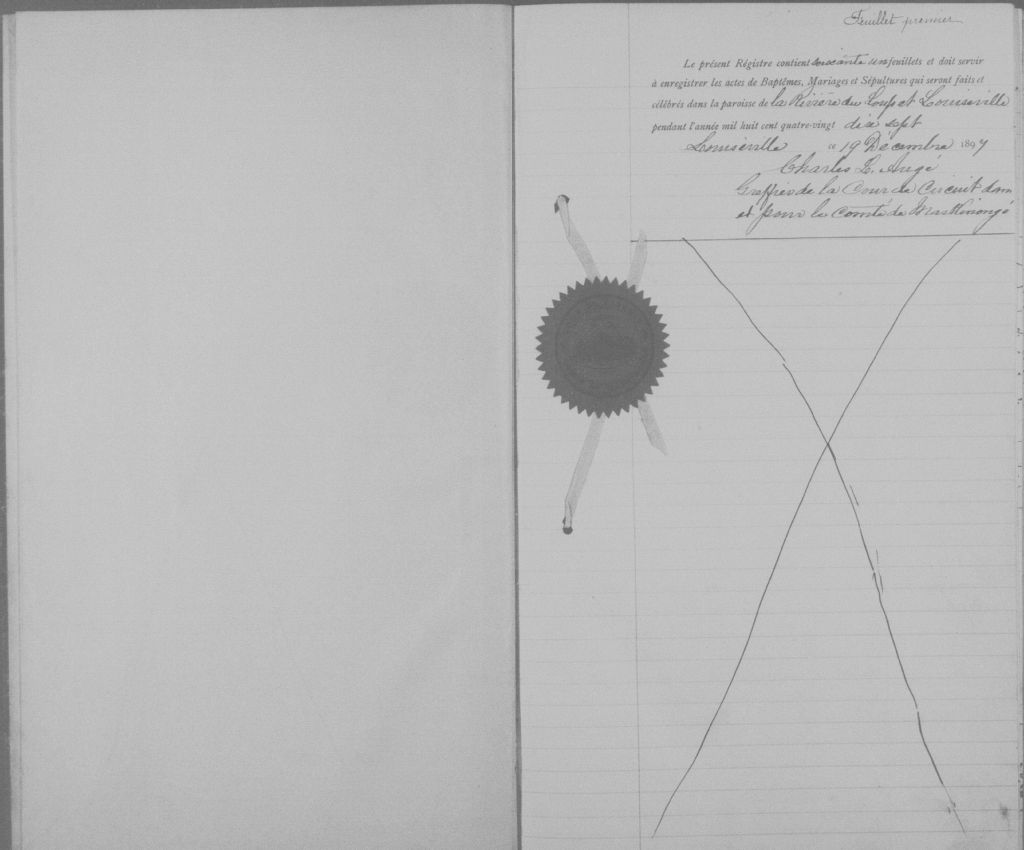 Feuillet premier
Le présent Régistre contient soixante un feuillets et doit servir
à enregistrer les actes de Baptêmes, Mariages et Sépultures qui seront faits et
célébrés dans la paroisse de la Rivière du Loup et Louiseville
pendant l'année mil huit cent quatre-vingt dix sept
Louiseville ce 19 Décembre 1897
Charles L. Augé
Greffier de la Cour de Circuit dans
et pour le Comté de Maskinongé